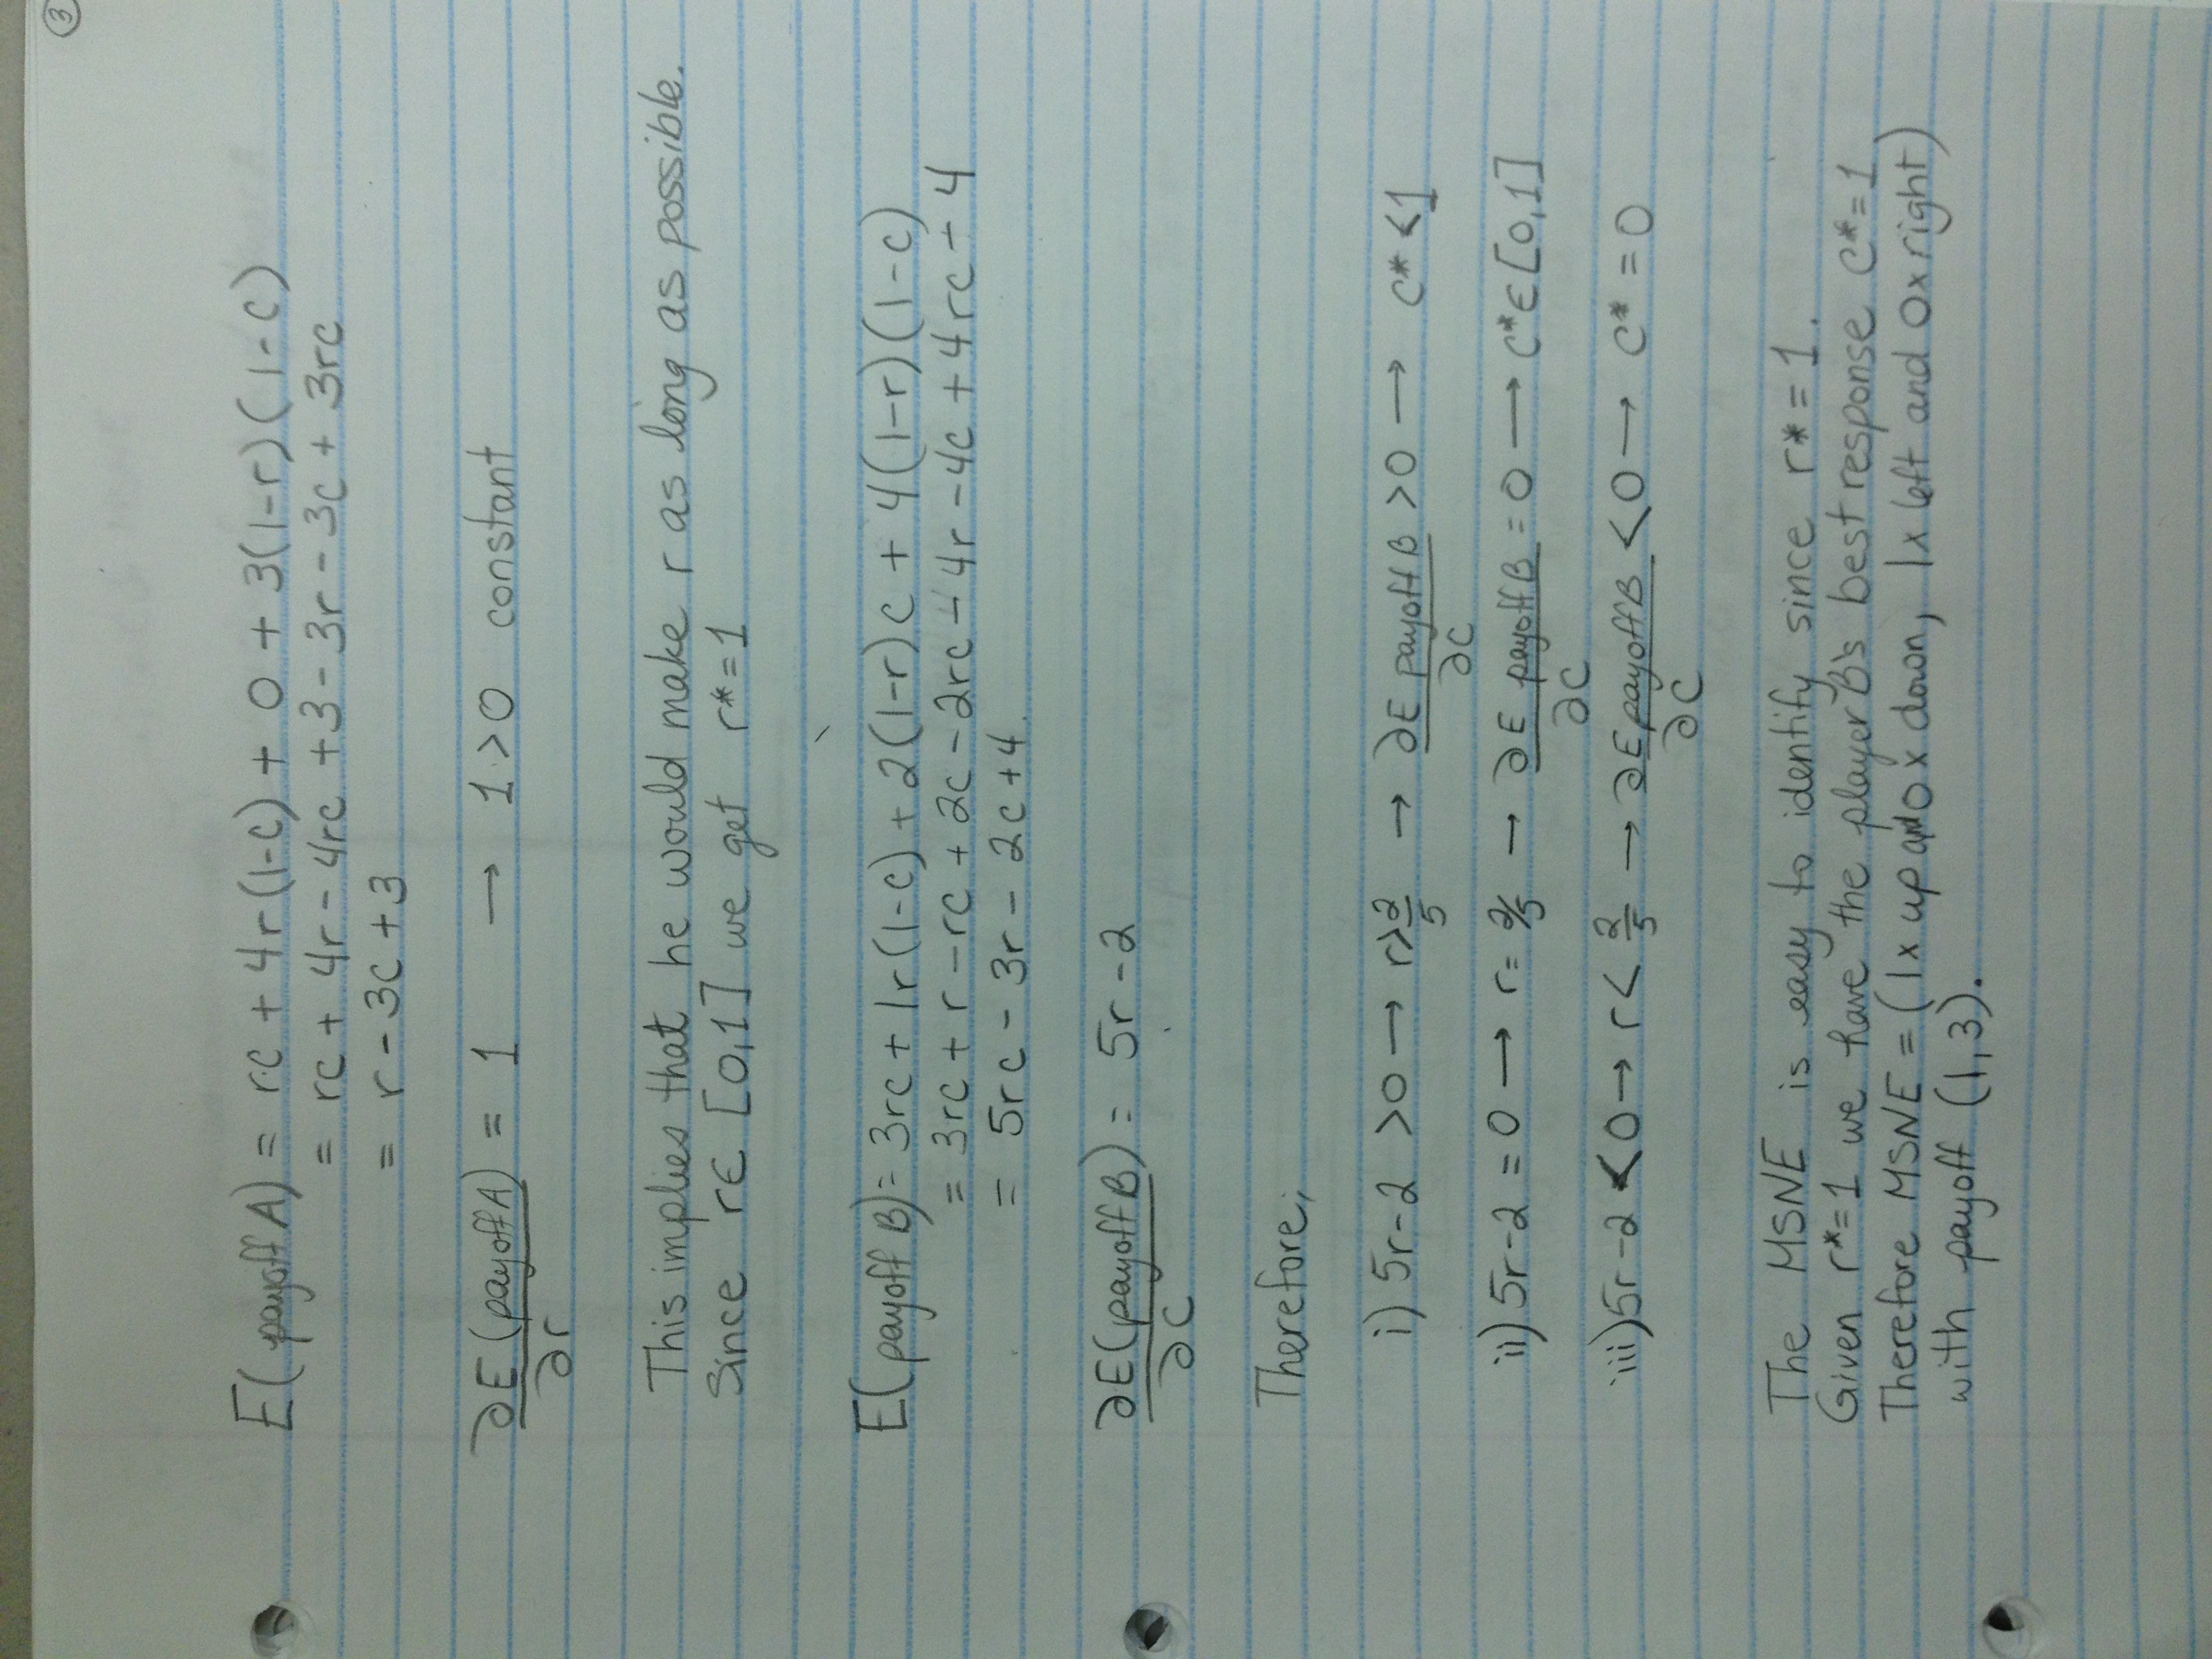 ③
E(payoff A) = rc + 4r(1-c) + 0 + 3(1-r)(1-c)
= rc + 4r - 4rc + 3 - 3r - 3c + 3rc
= r - 3c + 3
∂E(payoff A) / ∂r = 1 → 1 > 0 constant
This implies that he would make r as long as possible.
Since r∈[0,1] we get r* = 1
E(payoff B) = 3rc + 1r(1-c) + 2(1-r)c + 4(1-r)(1-c)
= 3rc + r - rc + 2c - 2rc + 4 - 4r - 4c + 4rc
= 5rc - 3r - 2c + 4
∂E(payoff B) / ∂c = 5r - 2
Therefore,
i) 5r-2 > 0 → r > 2/5 → ∂E payoff B / ∂c > 0 → c* < 1
ii) 5r-2 = 0 → r = 2/5 → ∂E payoff B / ∂c = 0 → c* ∈ [0,1]
iii) 5r-2 < 0 → r < 2/5 → ∂E payoff B / ∂c < 0 → c* = 0
The MSNE is easy to identify since r* = 1.
Given r* = 1 we have the player B's best response c* = 1
Therefore MSNE = (1x up and 0x down, 1x left and 0x right)
with payoff (1,3).